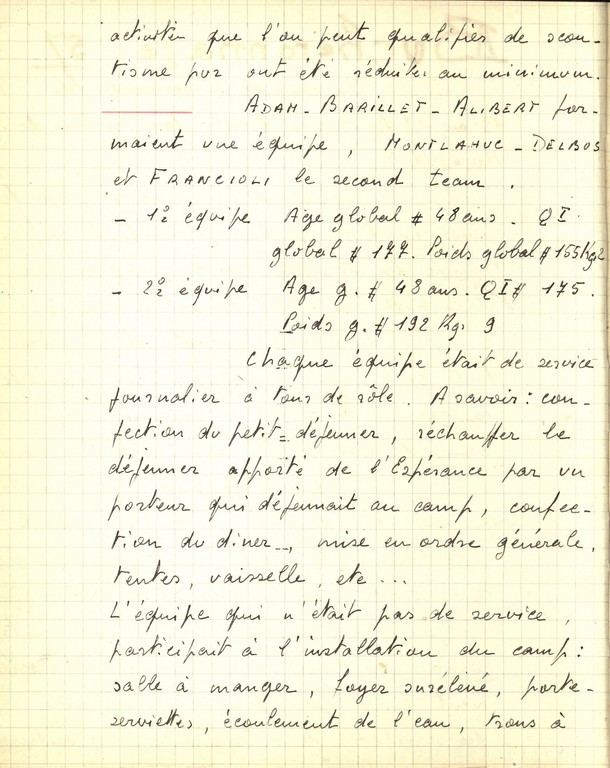 activités que l'on peut qualifier de scou-
tisme pur ont été réduites au minimum.
ADAM - BARILLET - ALIBERT for-
maient une équipe, MONTLAHUC - DELBOS
et FRANCIOLI le second team.
- 1º équipe Age global # 48 ans. QI.
global # 177. Poids global # 155 Kg 2
- 2º équipe Age g. # 48 ans. QI # 175.
Poids g. # 192 Kgs 9
Chaque équipe était de service
journalier à tour de rôle. A savoir: con-
fection du petit-déjeuner, réchauffer le
déjeuner apporté de l'Espérance par un
porteur qui déjeunait au camp, confec-
tion du diner, mise en ordre générale,
tentes, vaisselle, etc...
L'équipe qui n'était pas de service,
participait à l'installation du camp:
salle à manger, foyer surélevé, porte-
serviettes, écoulement de l'eau, trous à